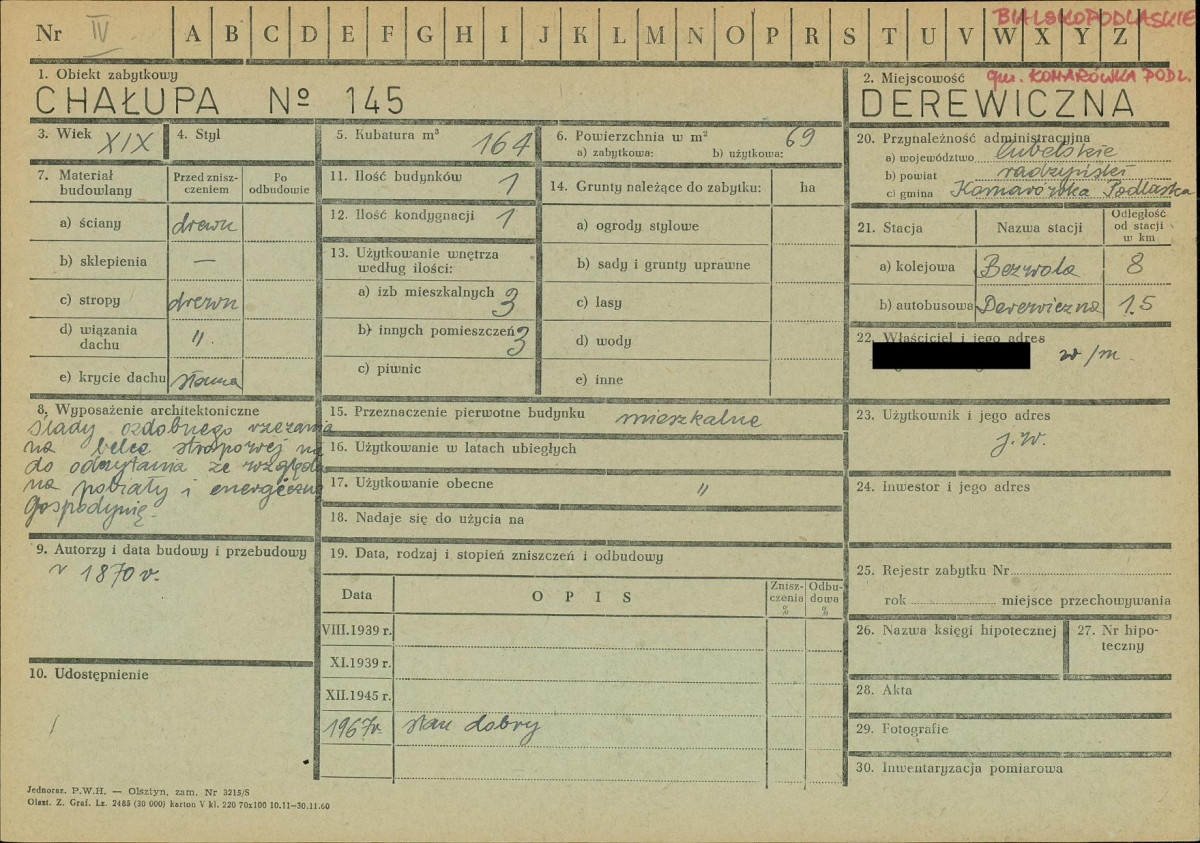 Nr IV A B C D E F G H I J K L M N O P R S T U V W X Y Z
BIALSKOPODLASKIE
gm. KOMARÓWKA PODL.
1. Obiekt zabytkowy
CHAŁUPA Nº 145
2. Miejscowość
DEREWICZNA
3. Wiek XIX
4. Styl
5. Kubatura m³ 164
6. Powierzchnia w m² 69
a) zabytkowa: b) użytkowa:
7. Materiał budowlany
Przed znisz-
czeniem
Po
odbudowie
a) ściany drewn
b) sklepienia —
c) stropy drewn
d) wiązania
dachu "
e) krycie dachu słoma
8. Wyposażenie architektoniczne
ślady ozdobnego rzezania
na belce stropowej
do odczytania ze względu
na pobiały i energiczną
Gospodynię
9. Autorzy i data budowy i przebudowy
1870 r.
10. Udostępnienie
11. Ilość budynków 1
12. Ilość kondygnacji 1
13. Użytkowanie wnętrza
według ilości:
a) izb mieszkalnych 3
b) innych pomieszczeń 3
c) piwnic
14. Grunty należące do zabytku: ha
a) ogrody stylowe
b) sady i grunty uprawne
c) lasy
d) wody
e) inne
15. Przeznaczenie pierwotne budynku mieszkalne
16. Użytkowanie w latach ubiegłych
17. Użytkowanie obecne "
18. Nadaje się do użycia na
19. Data, rodzaj i stopień zniszczeń i odbudowy
Data
OPIS
Znisz-
czenia
%
Odbu-
dowa
%
VIII.1939 r.
XI.1939 r.
XII.1945 r.
1967r. stan dobry
20. Przynależność administracyjna
a) województwo lubelskie
b) powiat radzyński
c) gmina Komarówka Podlaska
21. Stacja
Nazwa stacji
Odległość
od stacji
w km
a) kolejowa Bezwola 8
b) autobusowa Derewiczna 1.5
22. Właściciel i jego adres
w/m.
23. Użytkownik i jego adres
j.w.
24. Inwestor i jego adres
25. Rejestr zabytku Nr
rok miejsce przechowywania
26. Nazwa księgi hipotecznej
27. Nr hipo-
teczny
28. Akta
29. Fotografie
30. Inwentaryzacja pomiarowa
Jednoraz. P.W.H. — Olsztyn, zam. Nr 3215/S
Olszt. Z. Graf. Lz. 2485 (30 000) karton V kl. 220 70x100 10.11—30.11.60